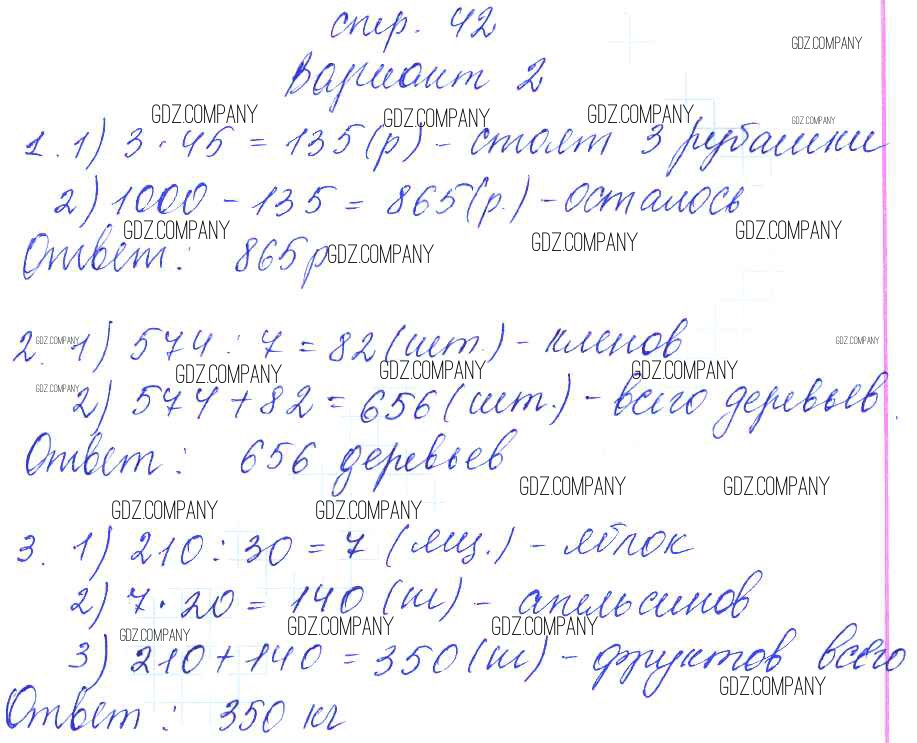 стр. 42
Вариант 2
GDZ.COMPANY
GDZ.COMPANY GDZ.COMPANY GDZ.COMPANY GDZ.COMPANY
1. 1) 3 · 45 = 135 (р) - стоят 3 рубашки
2) 1000 - 135 = 865 (р.) - осталось
GDZ.COMPANY GDZ.COMPANY GDZ.COMPANY
Ответ: 865 р GDZ.COMPANY
2. 1) 574 : 7 = 82 (шт.) - кленов
GDZ.COMPANY GDZ.COMPANY
GDZ.COMPANY GDZ.COMPANY GDZ.COMPANY GDZ.COMPANY
2) 574 + 82 = 656 (шт.) - всего деревьев
Ответ: 656 деревьев
GDZ.COMPANY GDZ.COMPANY
GDZ.COMPANY GDZ.COMPANY
3. 1) 210 : 30 = 7 (ящ.) - яблок
2) 7 · 20 = 140 (ш) - апельсинов
GDZ.COMPANY GDZ.COMPANY GDZ.COMPANY
3) 210 + 140 = 350 (ш) - фруктов всего
GDZ.COMPANY
Ответ: 350 кг